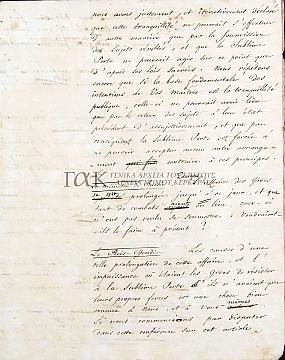 nous avons justement, et itérativement déclaré
que cette tranquillité ne pourrait s'effectuer
d'autre manière que par la soumission
des sujets révoltés, et que la Sublime
Porte ne pouvait agir sur ce point que
d'après ses lois sacrées. Nous répétons
encore que si la base fondamentale des
intentions de vos maîtres est la tranquillité
publique, celle-ci ne pourrait avoir lieu
que par le retour des sujets à leur état
précédent d'assujettissement, et que par
conséquent la Sublime Porte est forcée à
ne pouvoir accepter aucun autre arrange-
ment contraire à ces principes.
ΓΑΚ ΓΕΝΙΚΑ ΑΡΧΕΙΑ ΤΟΥ ΚΡΑΤΟΥΣ
ΚΕΡΚΥΡΑΣ
affaire des Grecs
prolongée jusqu'à ce jour, et que
tant de combats lieu, ceux-ci
n'ont pas voulu se soumettre: voudraient-
ils le faire à présent?
Le Reis-Effendi. Les causes d'une
telle prolongation de cette affaire, et l'
impuissance où étaient les Grecs de résister
à la Sublime Porte s'ils n'avaient que
leurs propres forces est une chose bien
connue à nous, et à vous mêmes
Si nous commencions par disputer
dans cette conférence sur cet article